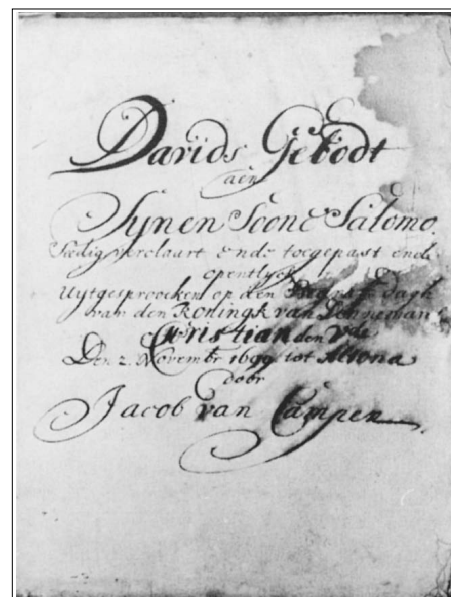 Davids Gebodt
aen
Synen Soone Salomo,
verclaart ende toegepast ende
opentlyck
Uytgesproocken op den Begraff dagh
van den Koningk van Dennemark
Christian den Vde
Den 2. Novembr 1699 tot Altona
door
Jacob van Campen.